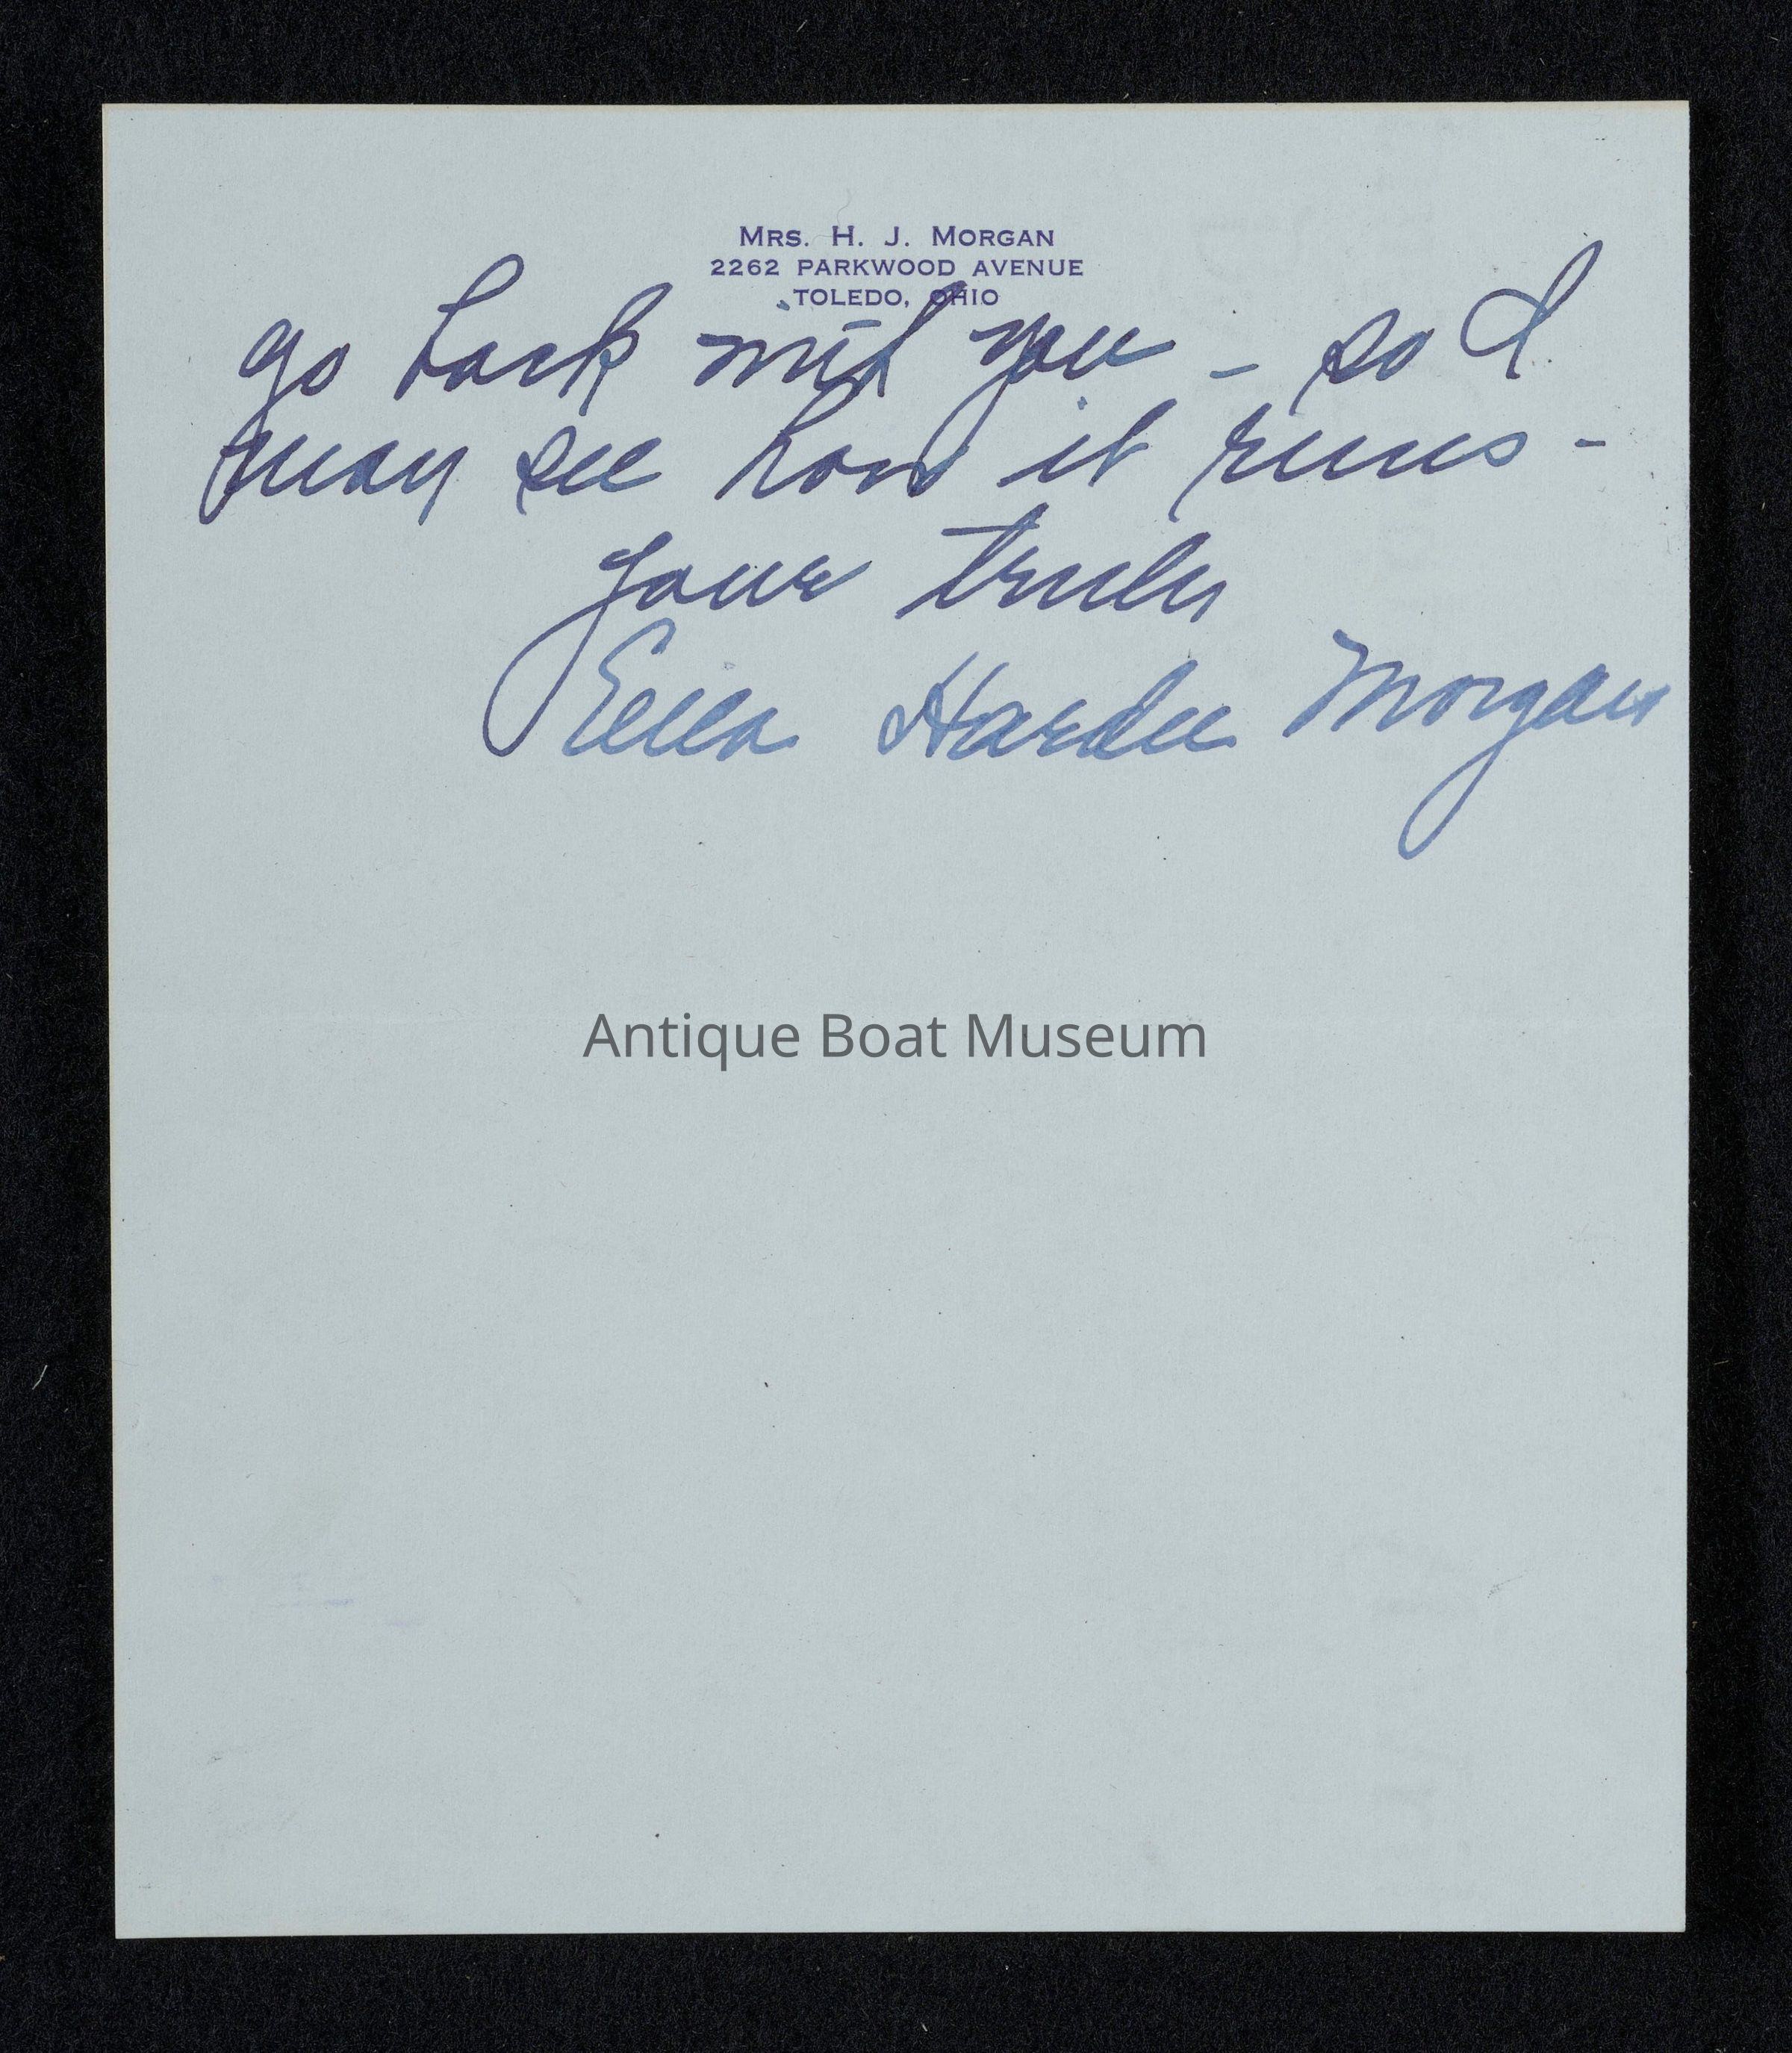 MRS. H. J. MORGAN
2262 PARKWOOD AVENUE
TOLEDO, OHIO
go back with you - so I
may see how it runs -
your truly
Ella Hardee Morgan
Antique Boat Museum